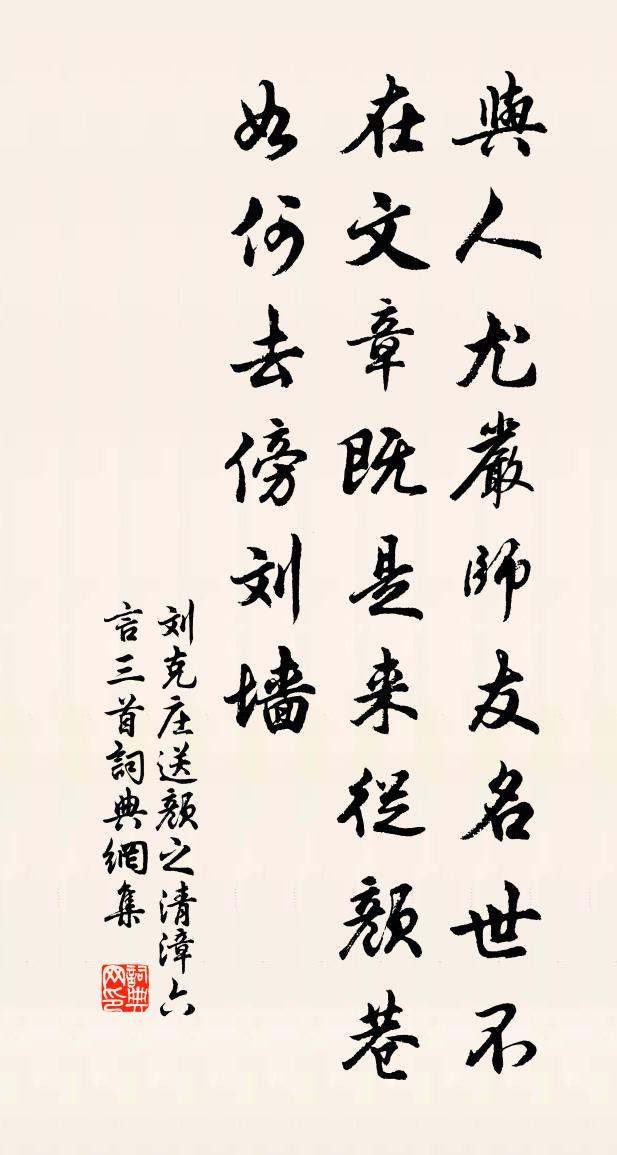 與人尤嚴師友名世不
在文章既是来從顏巷
如何去傍刘墙
刘克庄送顏之清漳六
言三首詞典網集
詞典网印